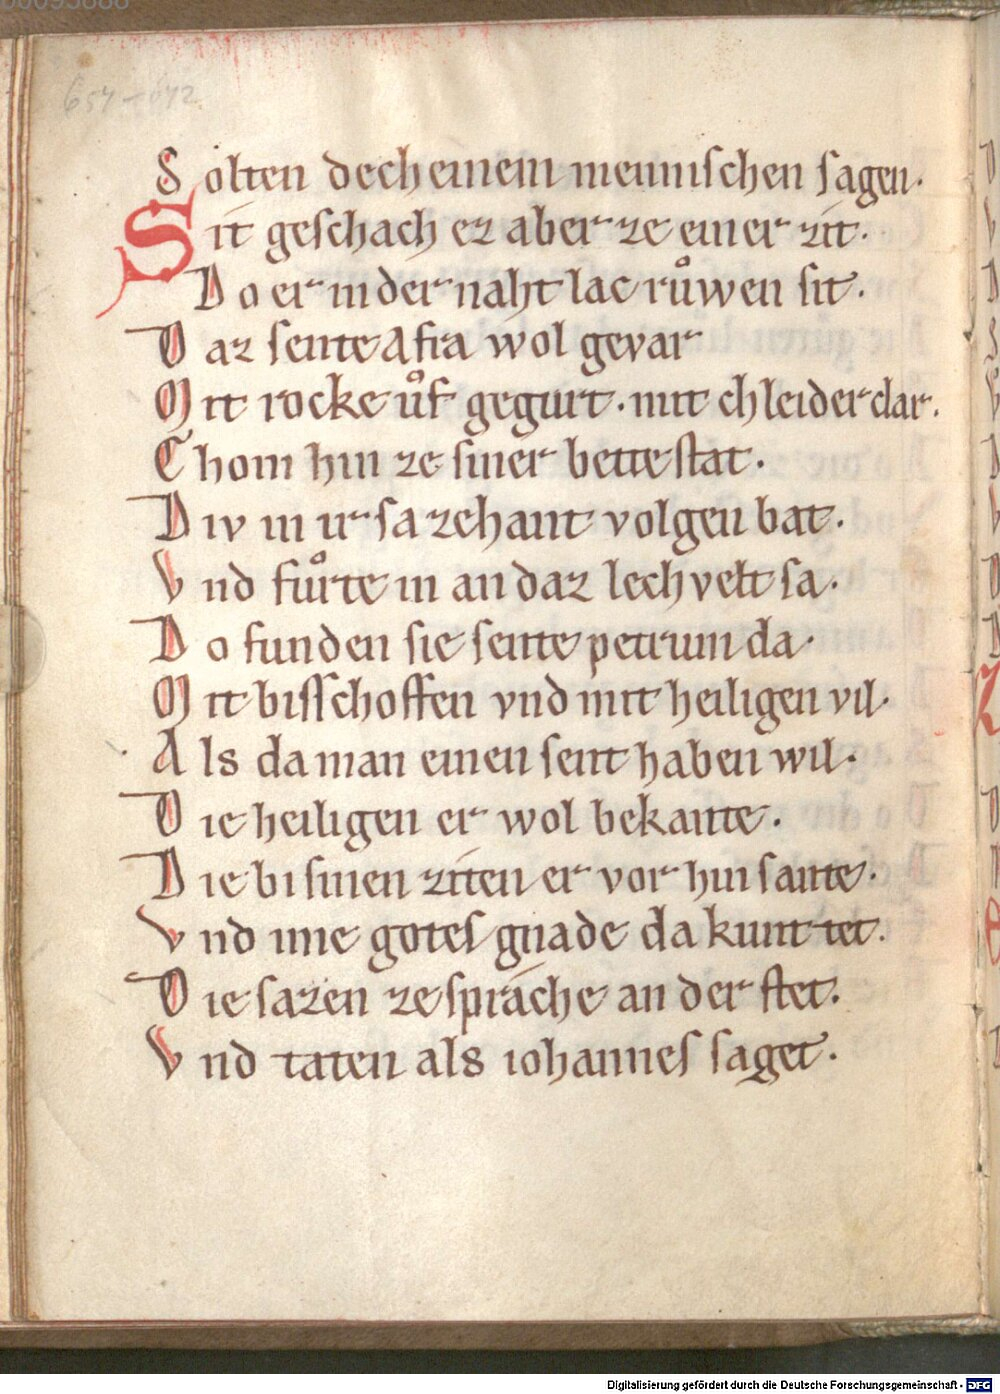 657-672
Solten decheinem mennischen sagen.
Sit geschach ez aber ze einer zit.
Do er in der naht lac růwen sit.
Daz sente Afra wol gevar
Mit rocke ůf gegurt. mit chleider clar.
Chom hin ze siner bettestat.
Div in ir sa zehant volgen bat.
Vnd fůrte in an daz lechvelt sa.
Do funden sie sente petrum da.
Mit bisschoffen vnd mit heiligen vil.
Als da man einen sent haben wil.
Die heiligen er wol bekante.
Die bi sinen ziten er vor hin sante.
Vnd ime gotes gnade da kunt tet.
Die sazen ze sprache an der stet.
Vnd taten als iohannes saget.
Digitalisierung gefördert durch die Deutsche Forschungsgemeinschaft - DFG